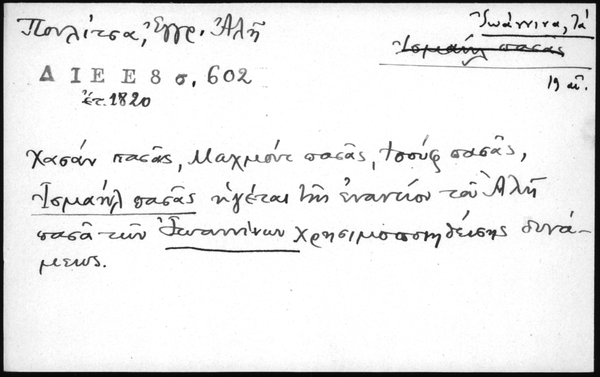 Πουλίτσα, Ἔγγρ. Ἀλῆ
Ἰωάννινα, τὰ
Ἰσμαὴλ πασᾶς
19 αἰ.
Δ Ι Ε Ε 8 σ. 602
ἔτ. 1820
Χασάν πασᾶς, Μαχμούτ πασᾶς, Ἰσούφ πασᾶς,
Ἰσμαήλ πασᾶς ἡγέται τῆς ἐναντίον τοῦ Ἀλῆ
πασᾶ τῶν Ἰωαννίνων χρησιμοποιηθείσης δυνά-
μεως.